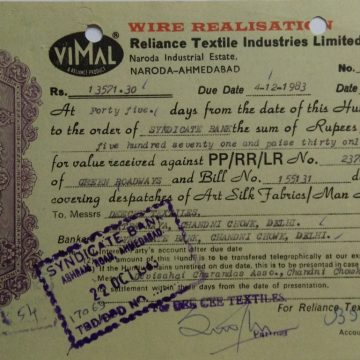 WIRE REALISATION
ViMAL
A RELIANCE PRODUCT
Reliance Textile Industries Limited
Naroda Industrial Estate,
NARODA-AHMEDABAD
No.
Rs. 13571.30 Due Date 4-12-1983
At Forty five. days from the date of this Hu
to the order of SYNDICATE BANK the sum of Rupees
five hundred seventy one and paise thirty onl
for value received against PP/RR/LR No. 237
of GREEN ROADWAYS and Bill No. 155131 d
covering despatches of Art Silk Fabrics/Man
To, Messrs TEXTILES.
CHANDNI CHOWK, DELHI.
Banke BANK, CHANDNI CHOWK, DELHI.
party's account after due date
this Hundi is to be transferred telegraphically at our e
If the Hundi remains unretired on due date, this is to be presented in case
Chandni Chowk
settlement within the said period.
SYNDICATE BANK
ASHRAM ROAD, AHMEDABAD
22 OCT 1983
TBD/DBD NO.
TEXTILES.
For Reliance Te
54